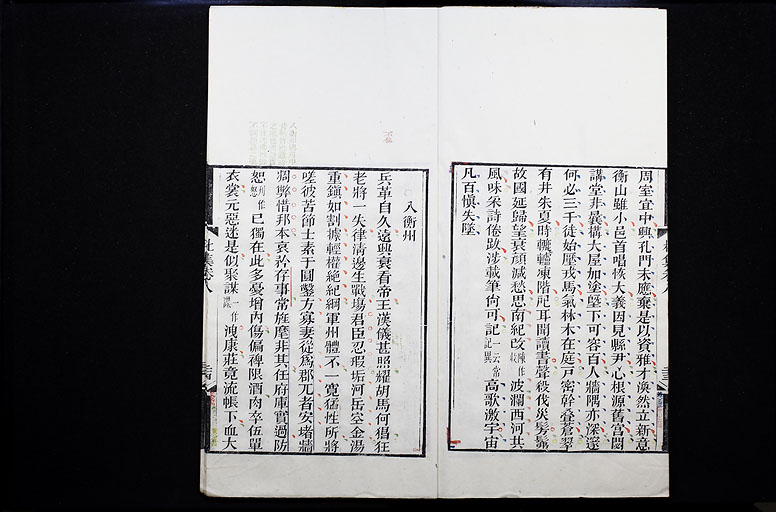 周室宜中興孔門未應棄是以資雅才渙然立新意
衡山雖小邑首唱恢大義因見縣尹心根源舊宮閟
講堂非曩構大屋加塗墍下可容百人牆隅亦深邃
何必三千徒始壓戎馬氣林木在庭戸密幹疊蒼翠
有井朱夏時轆轤凍階戺耳聞讀書聲殺伐災髣髴
故國延歸望衰顔減愁思南紀改陳作收波瀾西河共
風味采詩倦跋涉載筆尙可記一云常記異高歌激宇宙
凡百愼失墜
入衡州
兵革自久遠興衰看帝王漢儀甚照耀胡馬何猖狂
老將一失律淸邊生戰場君臣忍瑕垢河岳空金湯
重鎭如割據輕權絶紀綱軍州體不一寬猛性所將
嗟彼苦節士素于圓鑿方寡妻從爲郡兀者安堵牆
凋弊惜邦本哀矜存事常旌麾非其任府庫實過防
恕己獨在此多憂增内傷偏裨限酒肉卒伍單
衣裳元惡迷是似聚謀一作洩康莊竟流帳下血大
杜集卷八